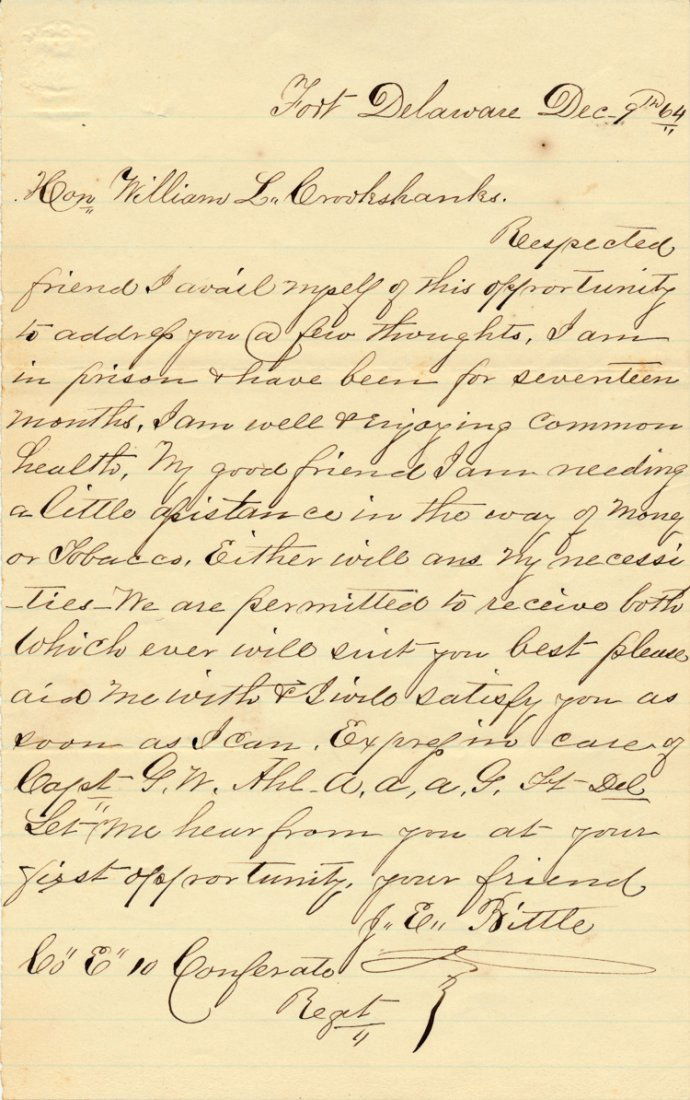 Fort Delaware Dec 9th 64
Hon William L. Crookshanks.
Respected
friend I avail myself of this opportunity
to address you a few thoughts, I am
in prison & have been for seventeen
months, I am well & enjoying common
health, My good friend I am needing
a little assistance in the way of Money
or Tobacco. Either will ans my necessi
-ties- We are permitted to receive both
Which ever will suit you best please
aid me with & I will satisfy you as
soon as I can. Express in care of
Capt G. W. Ahl- a, a, a, G, Ft- Del
Let me hear from you at your
first opportunity. your friend
J" E" Bittle
Co" E" 10 Conferate
Regt